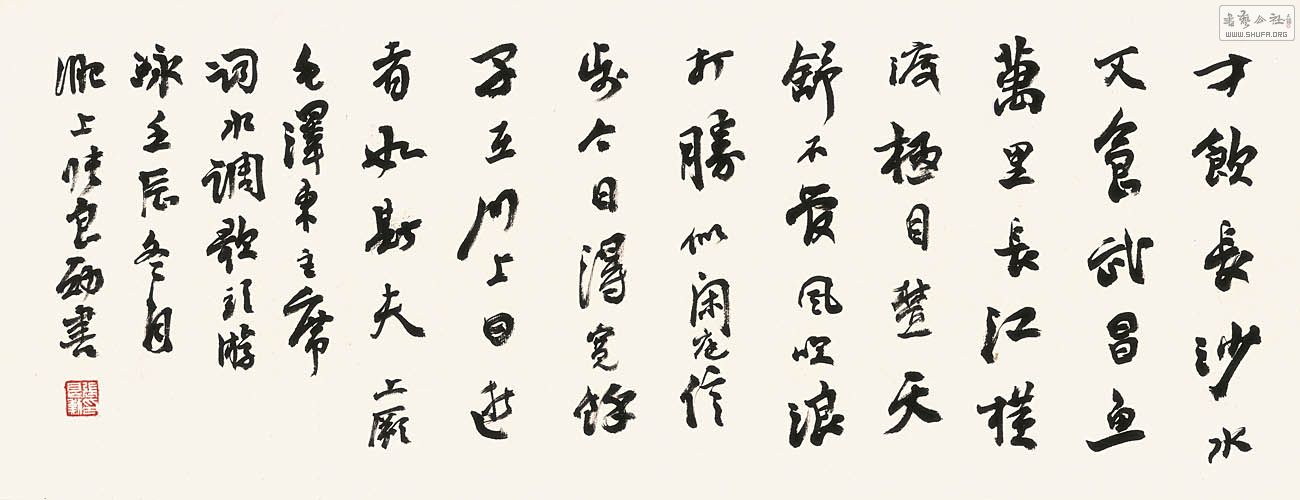 才飲長沙水
又食武昌鱼
萬里長江横
渡極目楚天
舒不管風吹浪
打勝似闲庭信
步今日得寬餘
子在川上曰逝
者如斯夫 上厥
毛澤東主席
词水調歌頭游
泳壬辰冬月
淝上張良勛書
書藝公社
WWW.SHUFA.ORG